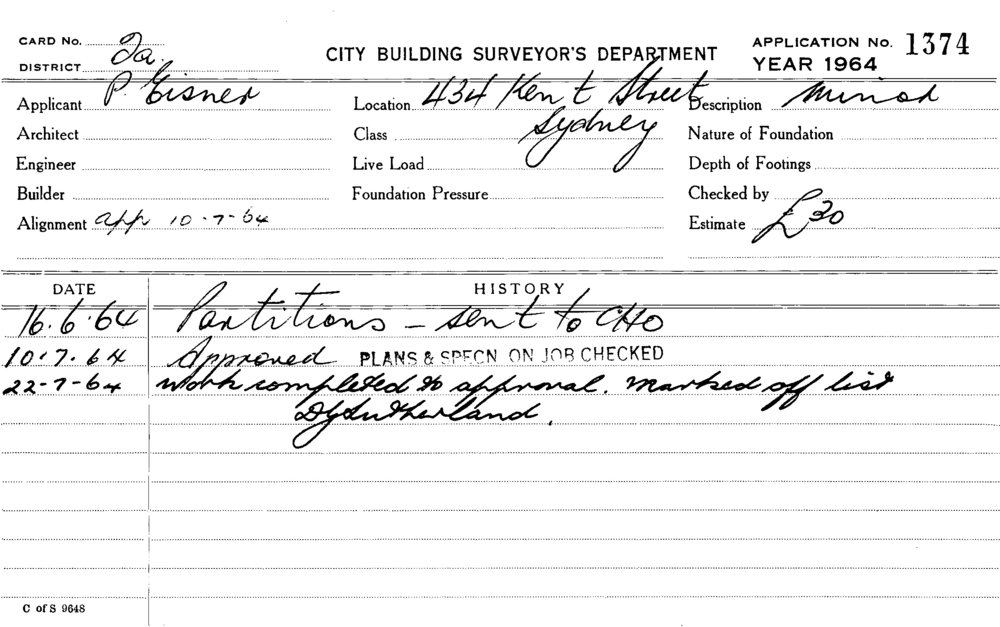 CARD No.
DISTRICT 2a.
CITY BUILDING SURVEYOR'S DEPARTMENT
APPLICATION No. 1374
YEAR 1964
Applicant P. Eisner
Location 434 Kent Street
Sydney
Description Minor
Architect
Class
Nature of Foundation
Engineer
Live Load
Depth of Footings
Builder
Foundation Pressure
Checked by
Alignment app 10-7-64
Estimate £30
DATE HISTORY
16.6.64 Partitions - sent to CHO
10.7.64 Approved PLANS & SPECN ON JOB CHECKED
22-7-64 work completed to approval. marked off list
DGSutherland.
C of S 9648